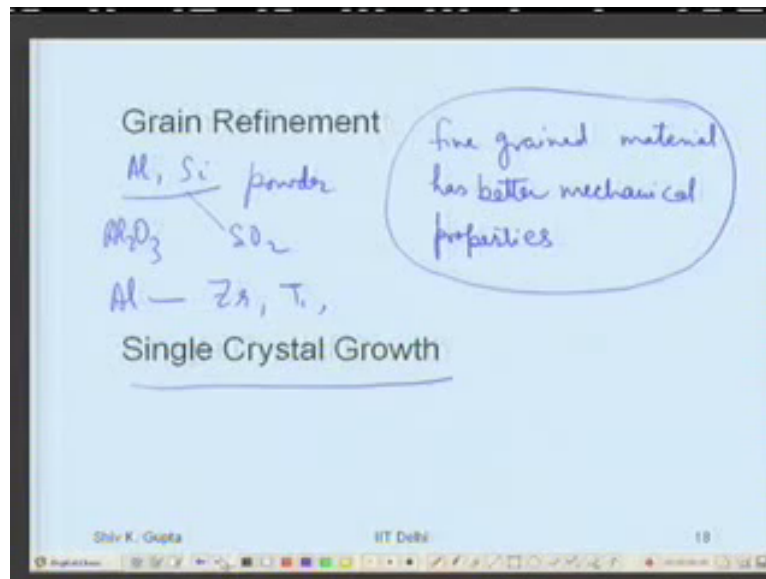 Grain Refinement
Al, Si powder
Al2O3 SO2
Al — Zr, Ti,
fine grained material
has better mechanical
properties
Single Crystal Growth
Shiv K. Gupta IIT Delhi 18